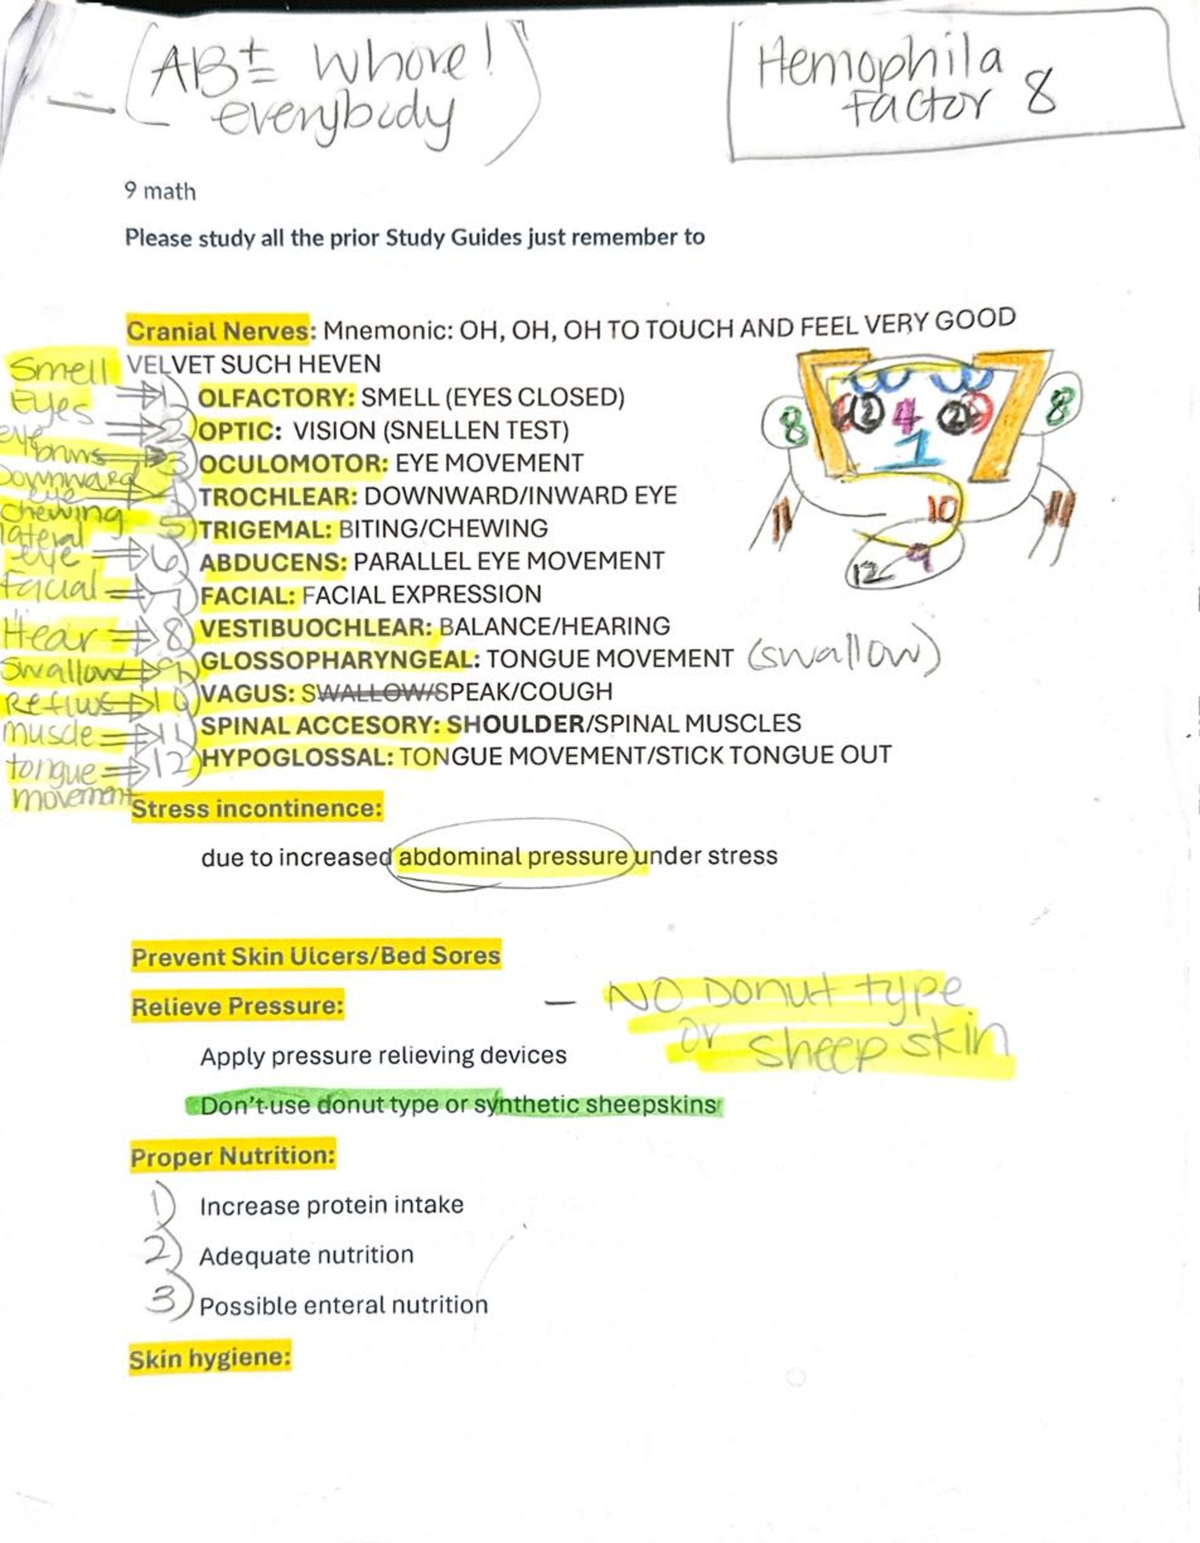 (AB± Whore!
everybody)
Hemophila
factor 8
9 math
Please study all the prior Study Guides just remember to
Cranial Nerves: Mnemonic: OH, OH, OH TO TOUCH AND FEEL VERY GOOD
VELVET SUCH HEVEN
Smell
Eyes
Downward
eye
chewing
lateral
eye
Facial
Hear
Swallow
muscle
tongue
movement
1) OLFACTORY: SMELL (EYES CLOSED)
2) OPTIC: VISION (SNELLEN TEST)
3) OCULOMOTOR: EYE MOVEMENT
TROCHLEAR: DOWNWARD/INWARD EYE
5) TRIGEMAL: BITING/CHEWING
6) ABDUCENS: PARALLEL EYE MOVEMENT
7) FACIAL: FACIAL EXPRESSION
8) VESTIBUOCHLEAR: BALANCE/HEARING
9) GLOSSOPHARYNGEAL: TONGUE MOVEMENT (swallow)
10) VAGUS: SWALLOW/SPEAK/COUGH
11) SPINAL ACCESORY: SHOULDER/SPINAL MUSCLES
12) HYPOGLOSSAL: TONGUE MOVEMENT/STICK TONGUE OUT
7 7
8 2 4 2 8
1
11 10 11
12 9
Stress incontinence:
due to increased abdominal pressure under stress
Prevent Skin Ulcers/Bed Sores
Relieve Pressure:
— NO Donut type
or sheep skin
Apply pressure relieving devices
Don't use donut type or synthetic sheepskins
Proper Nutrition:
1) Increase protein intake
2) Adequate nutrition
3) Possible enteral nutrition
Skin hygiene: